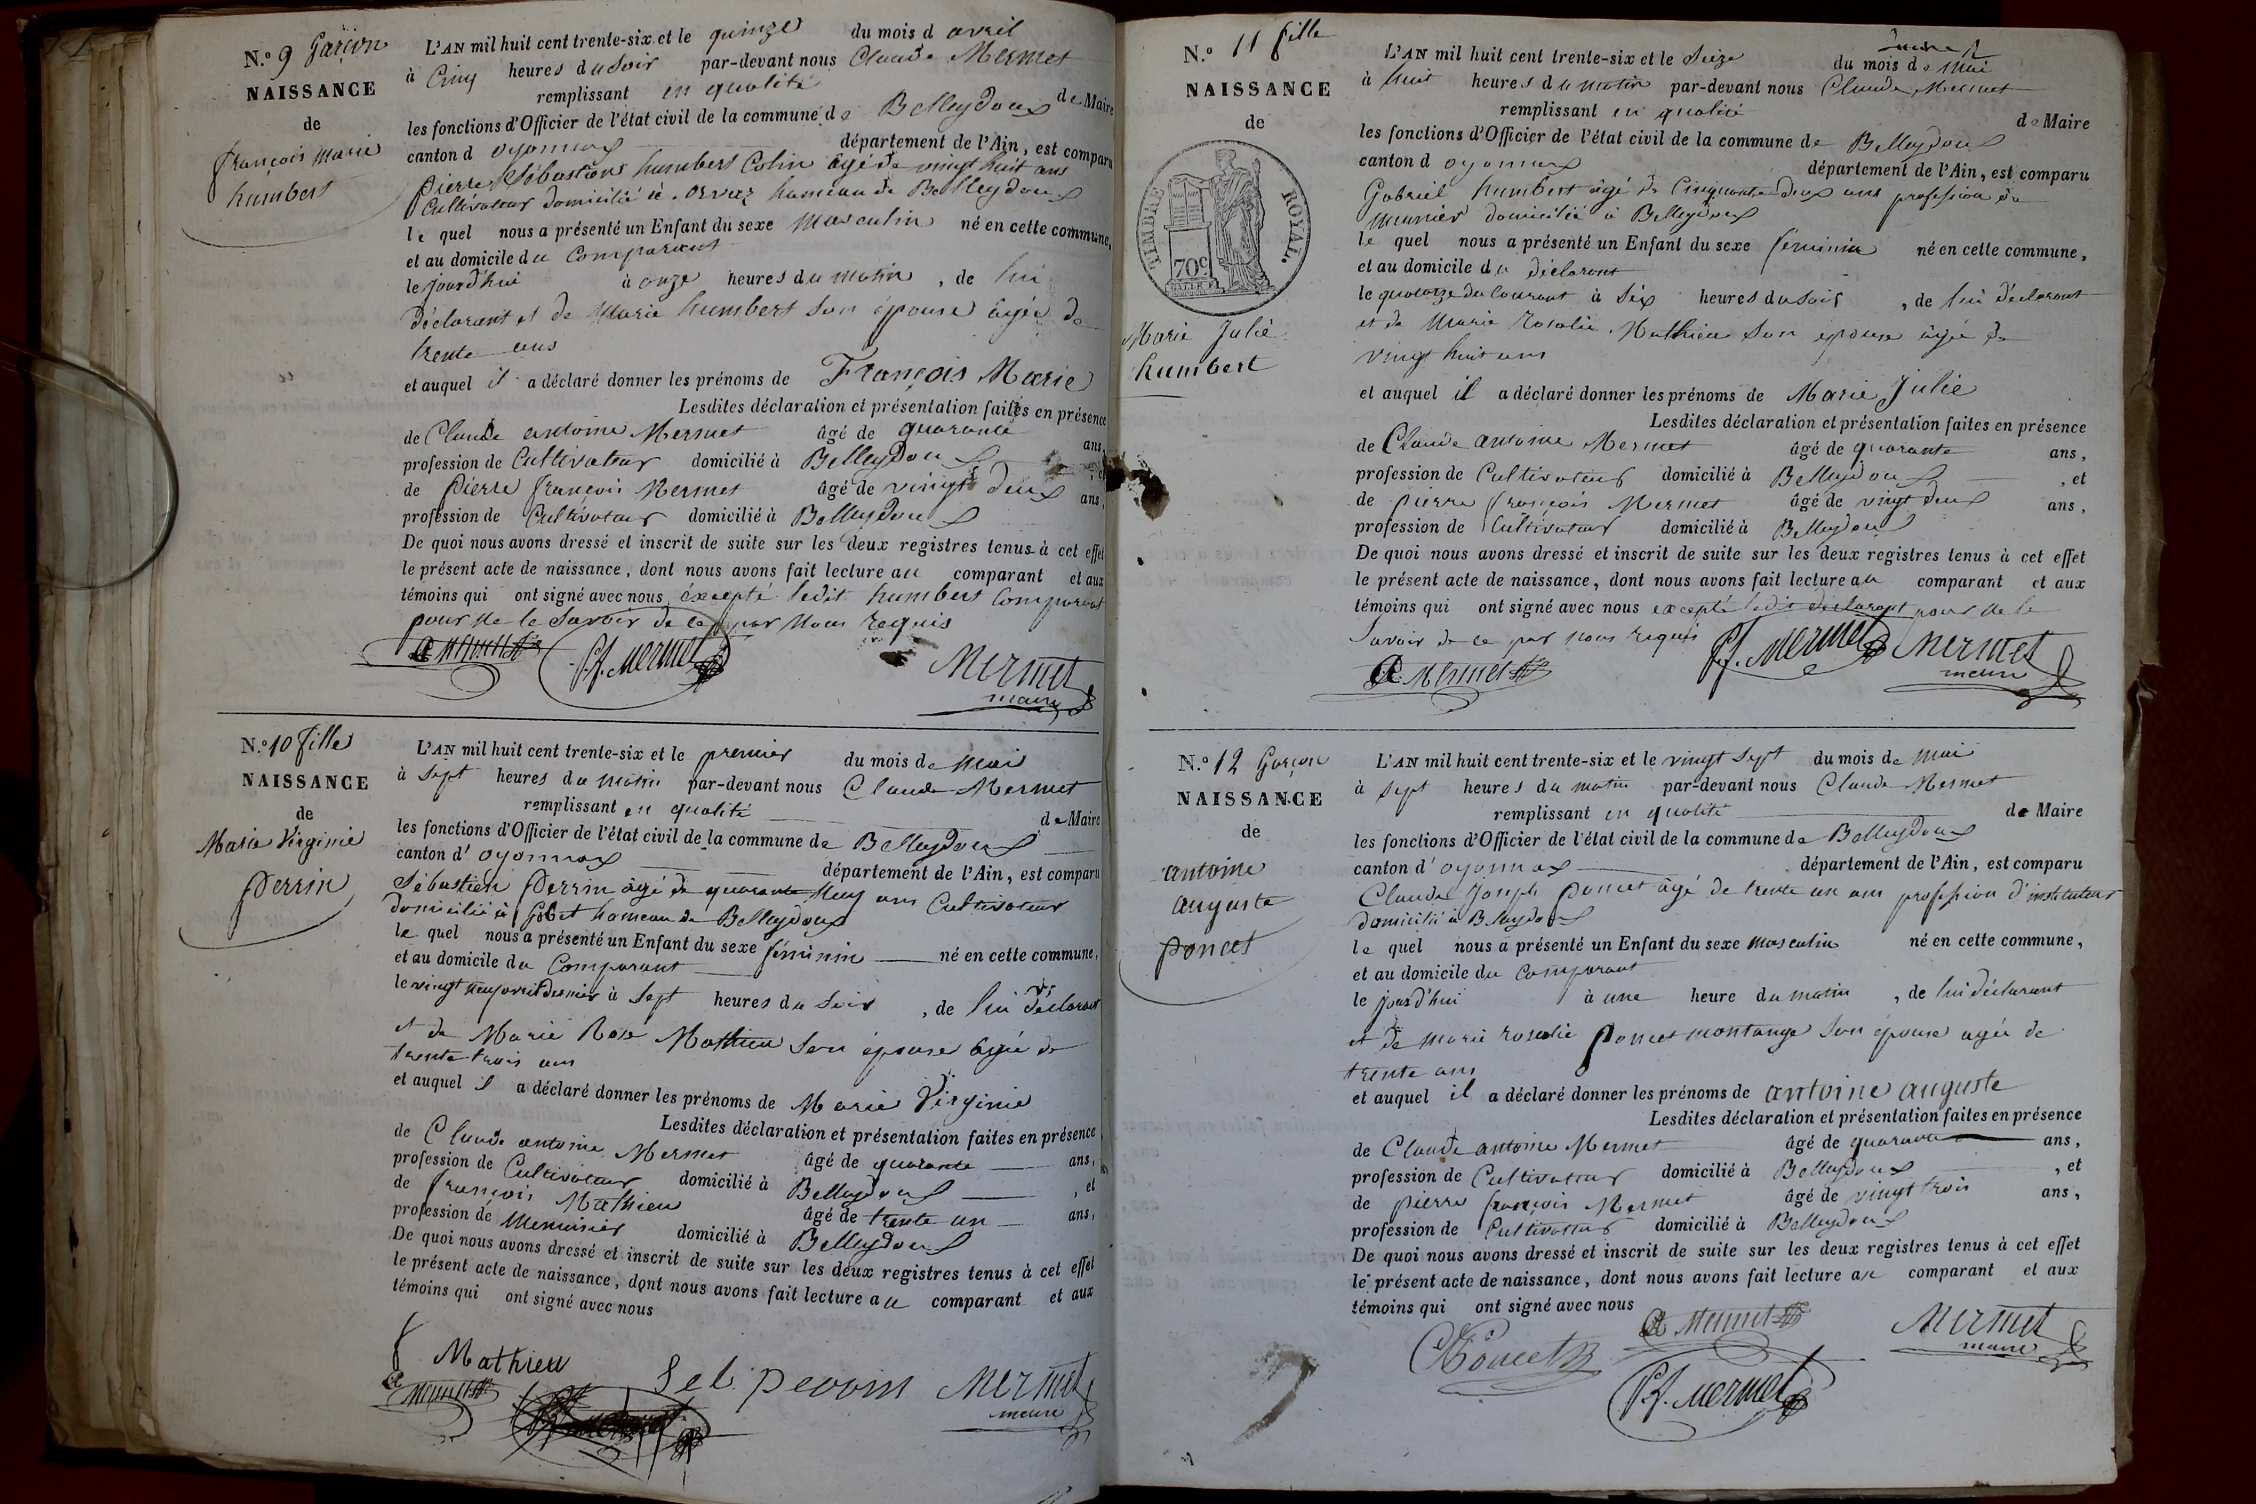 N.º 9 Garçon
NAISSANCE
de
François Marie
humbert
L'AN mil huit cent trente-six et le quinze du mois d avril
à Cinq heures du soir par-devant nous Claude Mermet
remplissant en qualité de Maire
les fonctions d'Officier de l'état civil de la commune de Belleydoux
canton d oyonnax département de l'Ain, est comparu
pierre Sébastien humbert Colin âgé de vingt huit ans
Cultivateur domicilié à orvaz hameau de Belleydoux
le quel nous a présenté un Enfant du sexe masculin né en cette commune,
et au domicile du Comparant
le jourd'hui à onze heures du matin, de lui
déclarant et de Marie humbert son épouse âgée de
trente ans
et auquel il a déclaré donner les prénoms de François Marie
Lesdites déclaration et présentation faites en présence
de Claude antoine Mermet âgé de quarante ans,
profession de Cultivateur domicilié à Belleydoux, et
de pierre françois Mermet âgé de vingt deux ans,
profession de Cultivateur domicilié à Belleydoux
De quoi nous avons dressé et inscrit de suite sur les deux registres tenus à cet effet
le présent acte de naissance, dont nous avons fait lecture au comparant et aux
témoins qui ont signé avec nous, éxcepté ledit humbert Comparant
pour ne le Savoir de ce par Nous requis
A Mermet P f. Mermet Mermet
maire
N.º 10 fille
NAISSANCE
de
Marie Virginie
perrin
L'AN mil huit cent trente-six et le premier du mois de mai
à sept heures du matin par-devant nous Claude Mermet
remplissant en qualité de Maire
les fonctions d'Officier de l'état civil de la commune de Belleydoux
canton d' oyonnax département de l'Ain, est comparu
Sébastien perrin âgé de quarante neuf ans Cultivateur
domicilié à Gobet hameau de Belleydoux
le quel nous a présenté un Enfant du sexe féminin né en cette commune,
et au domicile du Comparant
le vingt neuf avril dernier à sept heures du soir, de lui déclarant
et de Marie Rose Mathieu son épouse âgée de
trente trois ans
et auquel il a déclaré donner les prénoms de Marie Virginie
Lesdites déclaration et présentation faites en présence
de Claude antoine Mermet âgé de quarante ans,
profession de Cultivateur domicilié à Belleydoux, et
de françois Mathieu âgé de trente un ans,
profession de Menuisier domicilié à Belleydoux
De quoi nous avons dressé et inscrit de suite sur les deux registres tenus à cet effet
le présent acte de naissance, dont nous avons fait lecture au comparant et aux
témoins qui ont signé avec nous
f Mathieu
A Mermet Seb. perrin Mermet
maire
N.º 11 fille
NAISSANCE
de
TIMBRE ROYAL.
70c
Marie Julie
humbert
L'AN mil huit cent trente-six et le Seize du mois de mai
à huit heures du matin par-devant nous Claude Mermet
remplissant en qualité de Maire
les fonctions d'Officier de l'état civil de la commune de Belleydoux
canton d oyonnax département de l'Ain, est comparu
Gabriel humbert âgé de Cinquante deux ans profession de
meunier domicilié à Belleydoux
le quel nous a présenté un Enfant du sexe féminin né en cette commune,
et au domicile du déclarant
le quatorze du Courant à six heures du soir, de lui déclarant
et de Marie rosalie Mathieu son épouse âgée de
vingt huit ans
et auquel il a déclaré donner les prénoms de Marie Julie
Lesdites déclaration et présentation faites en présence
de Claude antoine Mermet âgé de quarante ans,
profession de Cultivateur domicilié à Belleydoux, et
de pierre françois Mermet âgé de vingt deux ans,
profession de Cultivateur domicilié à Belleydoux
De quoi nous avons dressé et inscrit de suite sur les deux registres tenus à cet effet
le présent acte de naissance, dont nous avons fait lecture au comparant et aux
témoins qui ont signé avec nous excepté ledit déclarant pour ne le
Savoir de ce par nous requis
A Mermet P f. Mermet Mermet
maire
N.º 12 Garçon
NAISSANCE
de
antoine
auguste
poncet
L'AN mil huit cent trente-six et le vingt sept du mois de mai
à sept heures du matin par-devant nous Claude Mermet
remplissant en qualité de Maire
les fonctions d'Officier de l'état civil de la commune de Belleydoux
canton d' oyonnax département de l'Ain, est comparu
Claude Joseph poncet âgé de trente un ans profession d'instituteur
domicilié à Belleydoux
le quel nous a présenté un Enfant du sexe masculin né en cette commune,
et au domicile du Comparant
le jourd'hui à une heure du matin, de lui déclarant
et de marie rosalie poncet montange son épouse agée de
trente ans
et auquel il a déclaré donner les prénoms de antoine auguste
Lesdites déclaration et présentation faites en présence
de Claude antoine Mermet âgé de quarante ans,
profession de Cultivateur domicilié à Belleydoux, et
de pierre françois Mermet âgé de vingt trois ans,
profession de Cultivateur domicilié à Belleydoux
De quoi nous avons dressé et inscrit de suite sur les deux registres tenus à cet effet
le présent acte de naissance, dont nous avons fait lecture au comparant et aux
témoins qui ont signé avec nous
Poncet A Mermet Mermet
maire
P f. Mermet